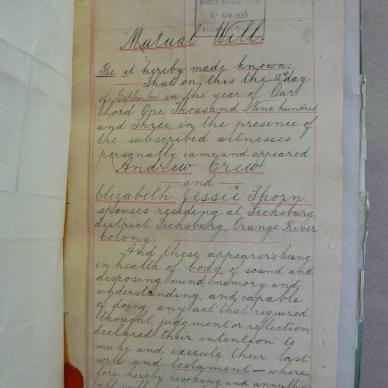 MASTER SUPREME COURT
6 - APR 1925
Mutual Will.
Be it hereby made known:
That on this the 12th day
of September in the year of Our
Lord One Thousand Nine hundred
and Three, in the presence of
the subscribed witnesses
personally came and appeared
Andrew Crew
and
Elizabeth Jessie Thorn
spouses residing at Ficksburg,
district Ficksburg, Orange River
Colony.
And these appearers being
in health of body of sound and
disposing mind, memory and
understanding, and capable
of doing any act that required
thought, judgment or reflection
declared their intention to
make and execute their last
will and testament – where
fore hereby revoking and annulling